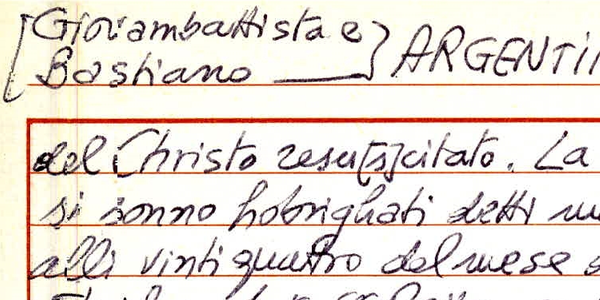 [Giovambattista e
Bastiano ___] ARGENTI
del Christo resu[s]citato. La
si sonno hobrighati detti
alli vintiquattro del mese